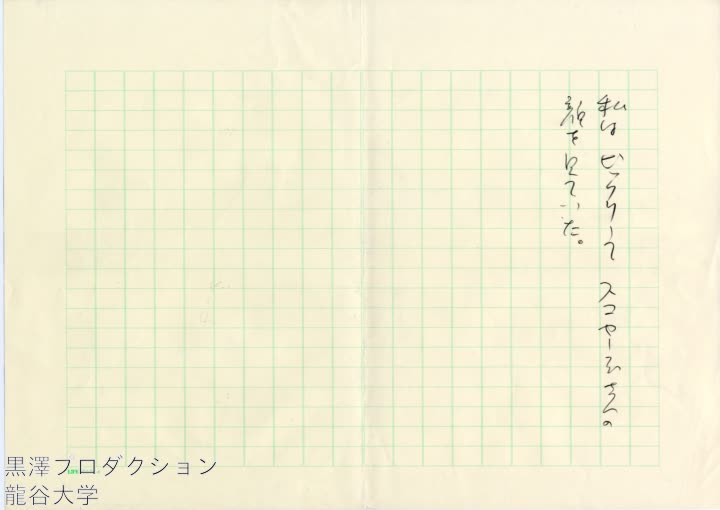 私はビックリして スコセーシさんの
顔を見ていた。
黒澤プロダクション
龍谷大学